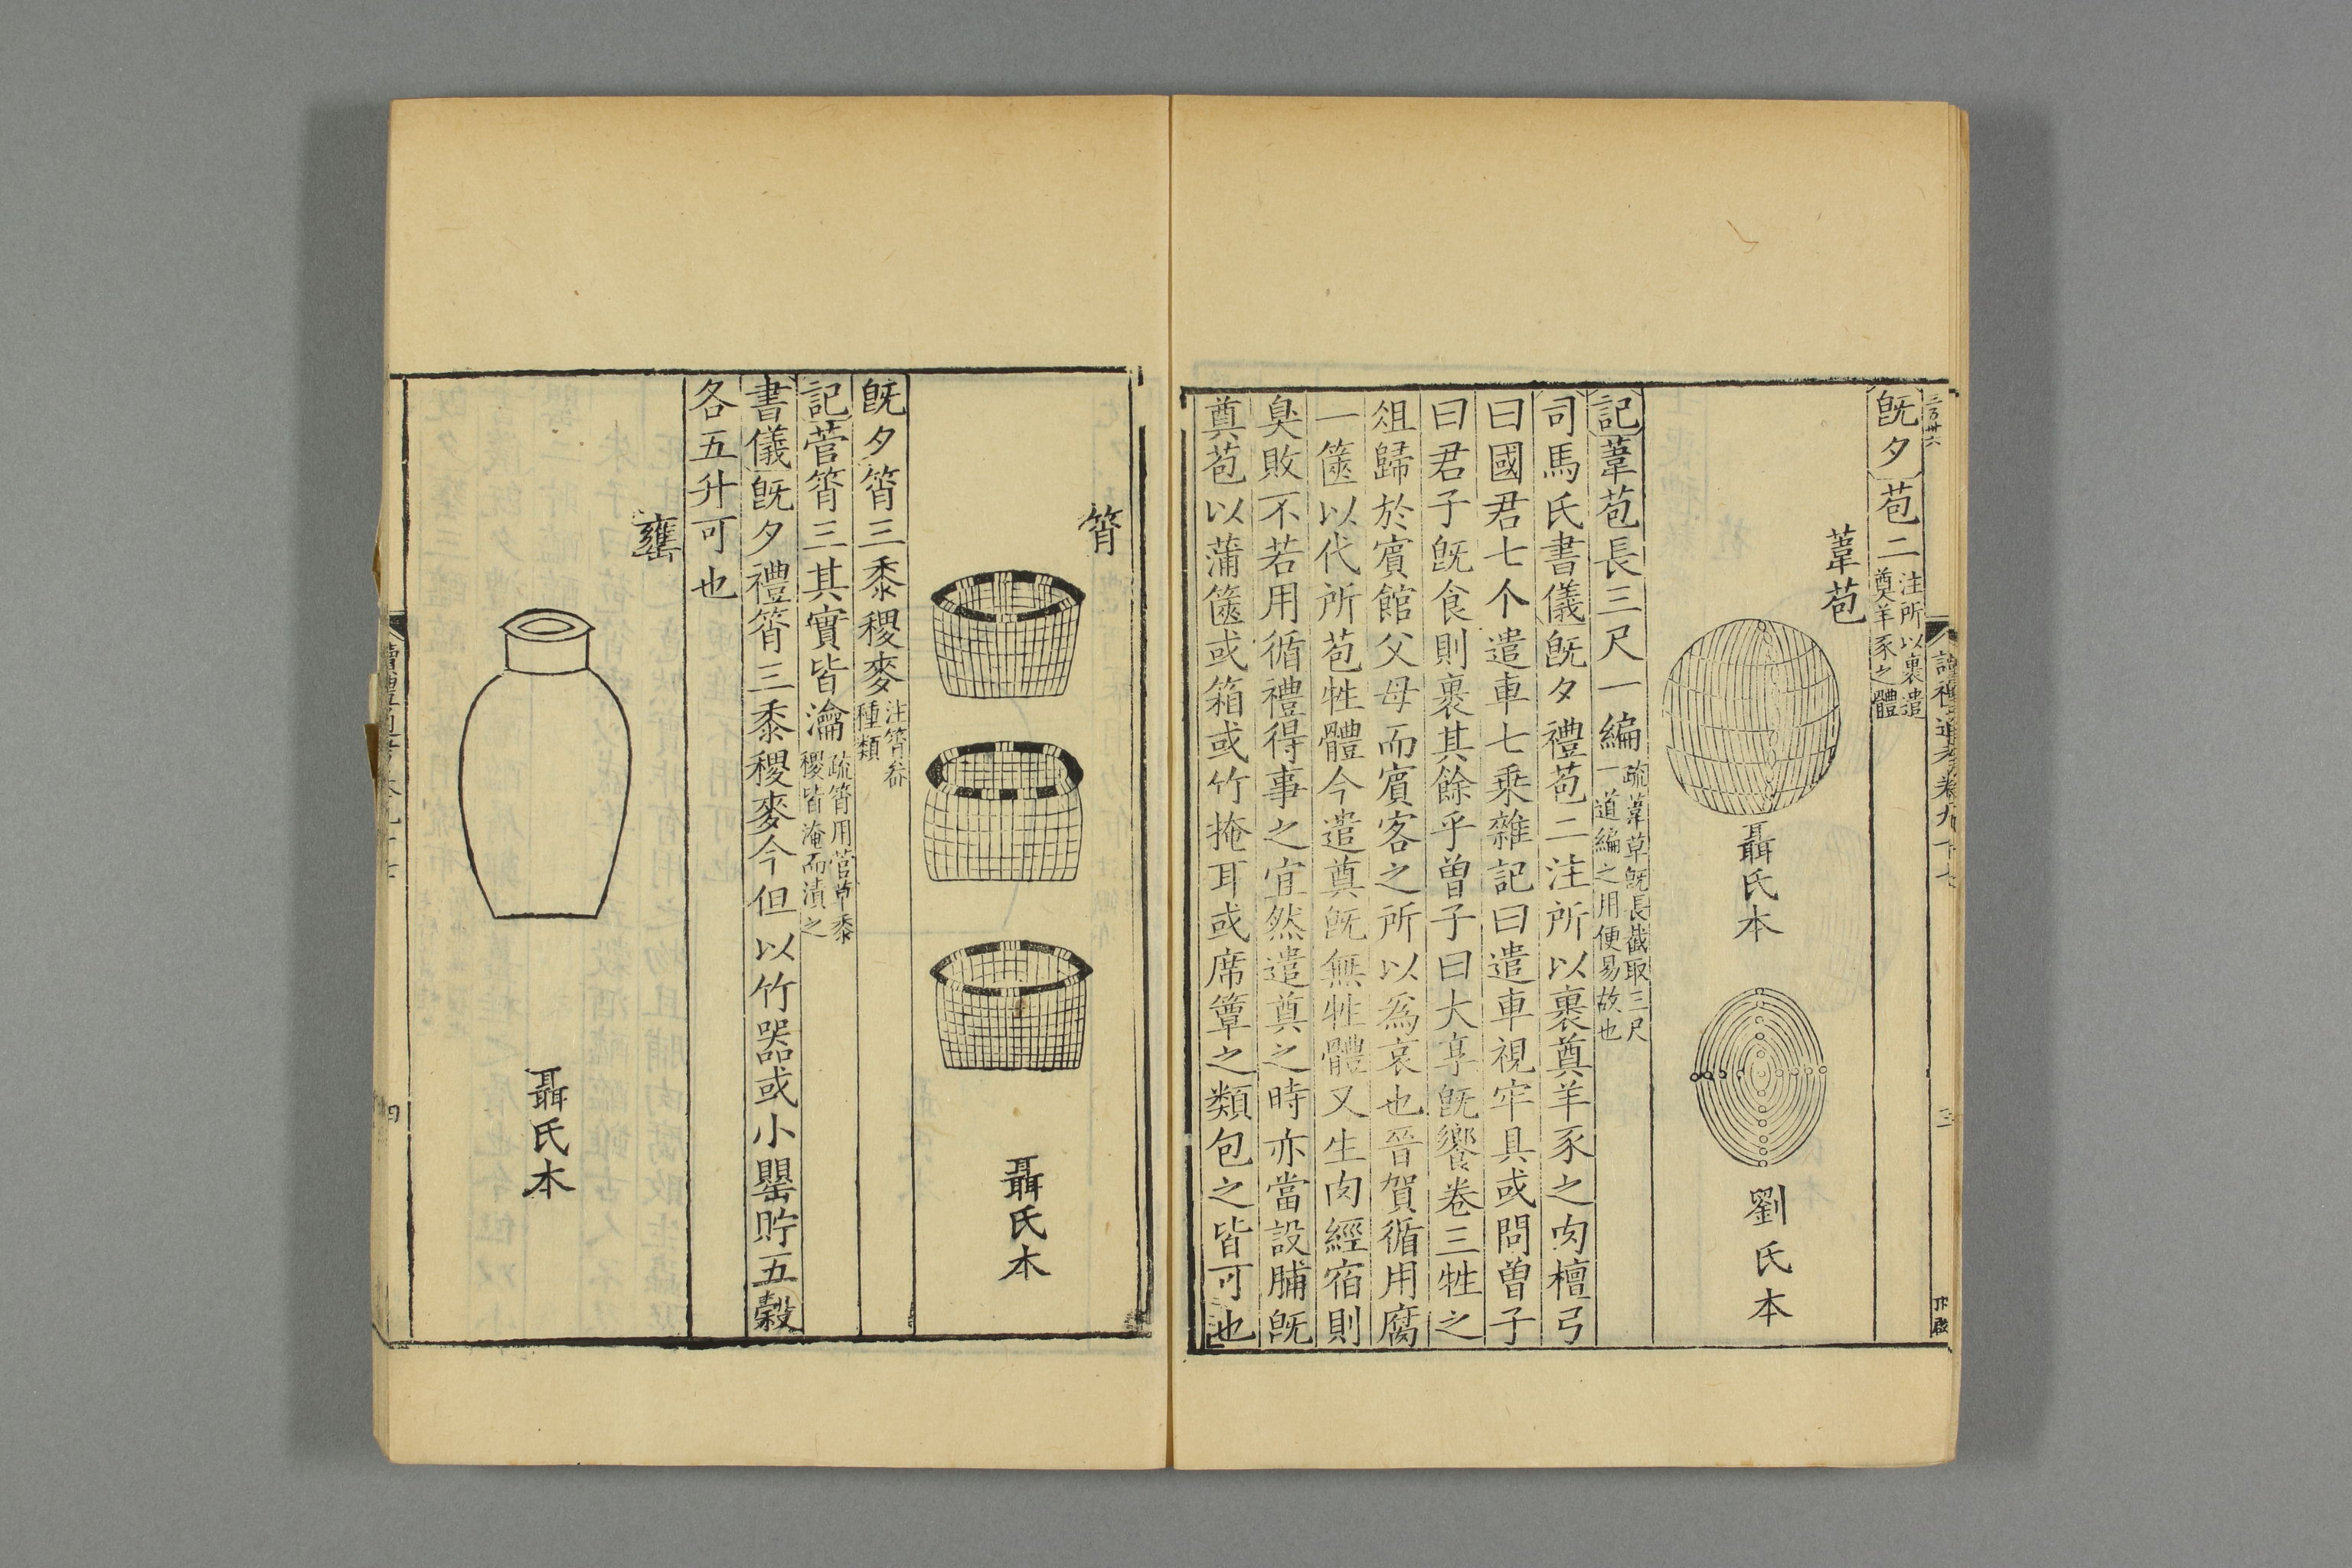 三百卅六
讀禮通考卷九十七
三
既夕苞二注所以裹遣奠羊豕之體
葦苞
聶氏本
劉氏本
記葦苞長三尺一編疏葦草既長截取三尺一道編之用便易故也
司馬氏書儀既夕禮苞二注所以裹奠羊豕之肉檀弓
曰國君七个遣車七乘雜記曰遣車視牢具或問曾子
曰君子既食則裹其餘乎曾子曰大享既饗卷三牲之
俎歸於賓館父母而賓客之所以爲哀也晉賀循用腐
一篋以代所苞牲體今遣奠既無牲體又生肉經宿則
臭敗不若用循禮得事之宜然遣奠之時亦當設脯既
奠苞以蒲篋或箱或竹掩耳或席簟之類包之皆可也
筲
聶氏本
既夕筲三黍稷麥注筲畚種類
記菅筲三其實皆瀹疏筲用菅草黍稷皆淹而漬之
書儀既夕禮筲三黍稷麥今但以竹器或小罌貯五穀
各五升可也
甕
聶氏本
四